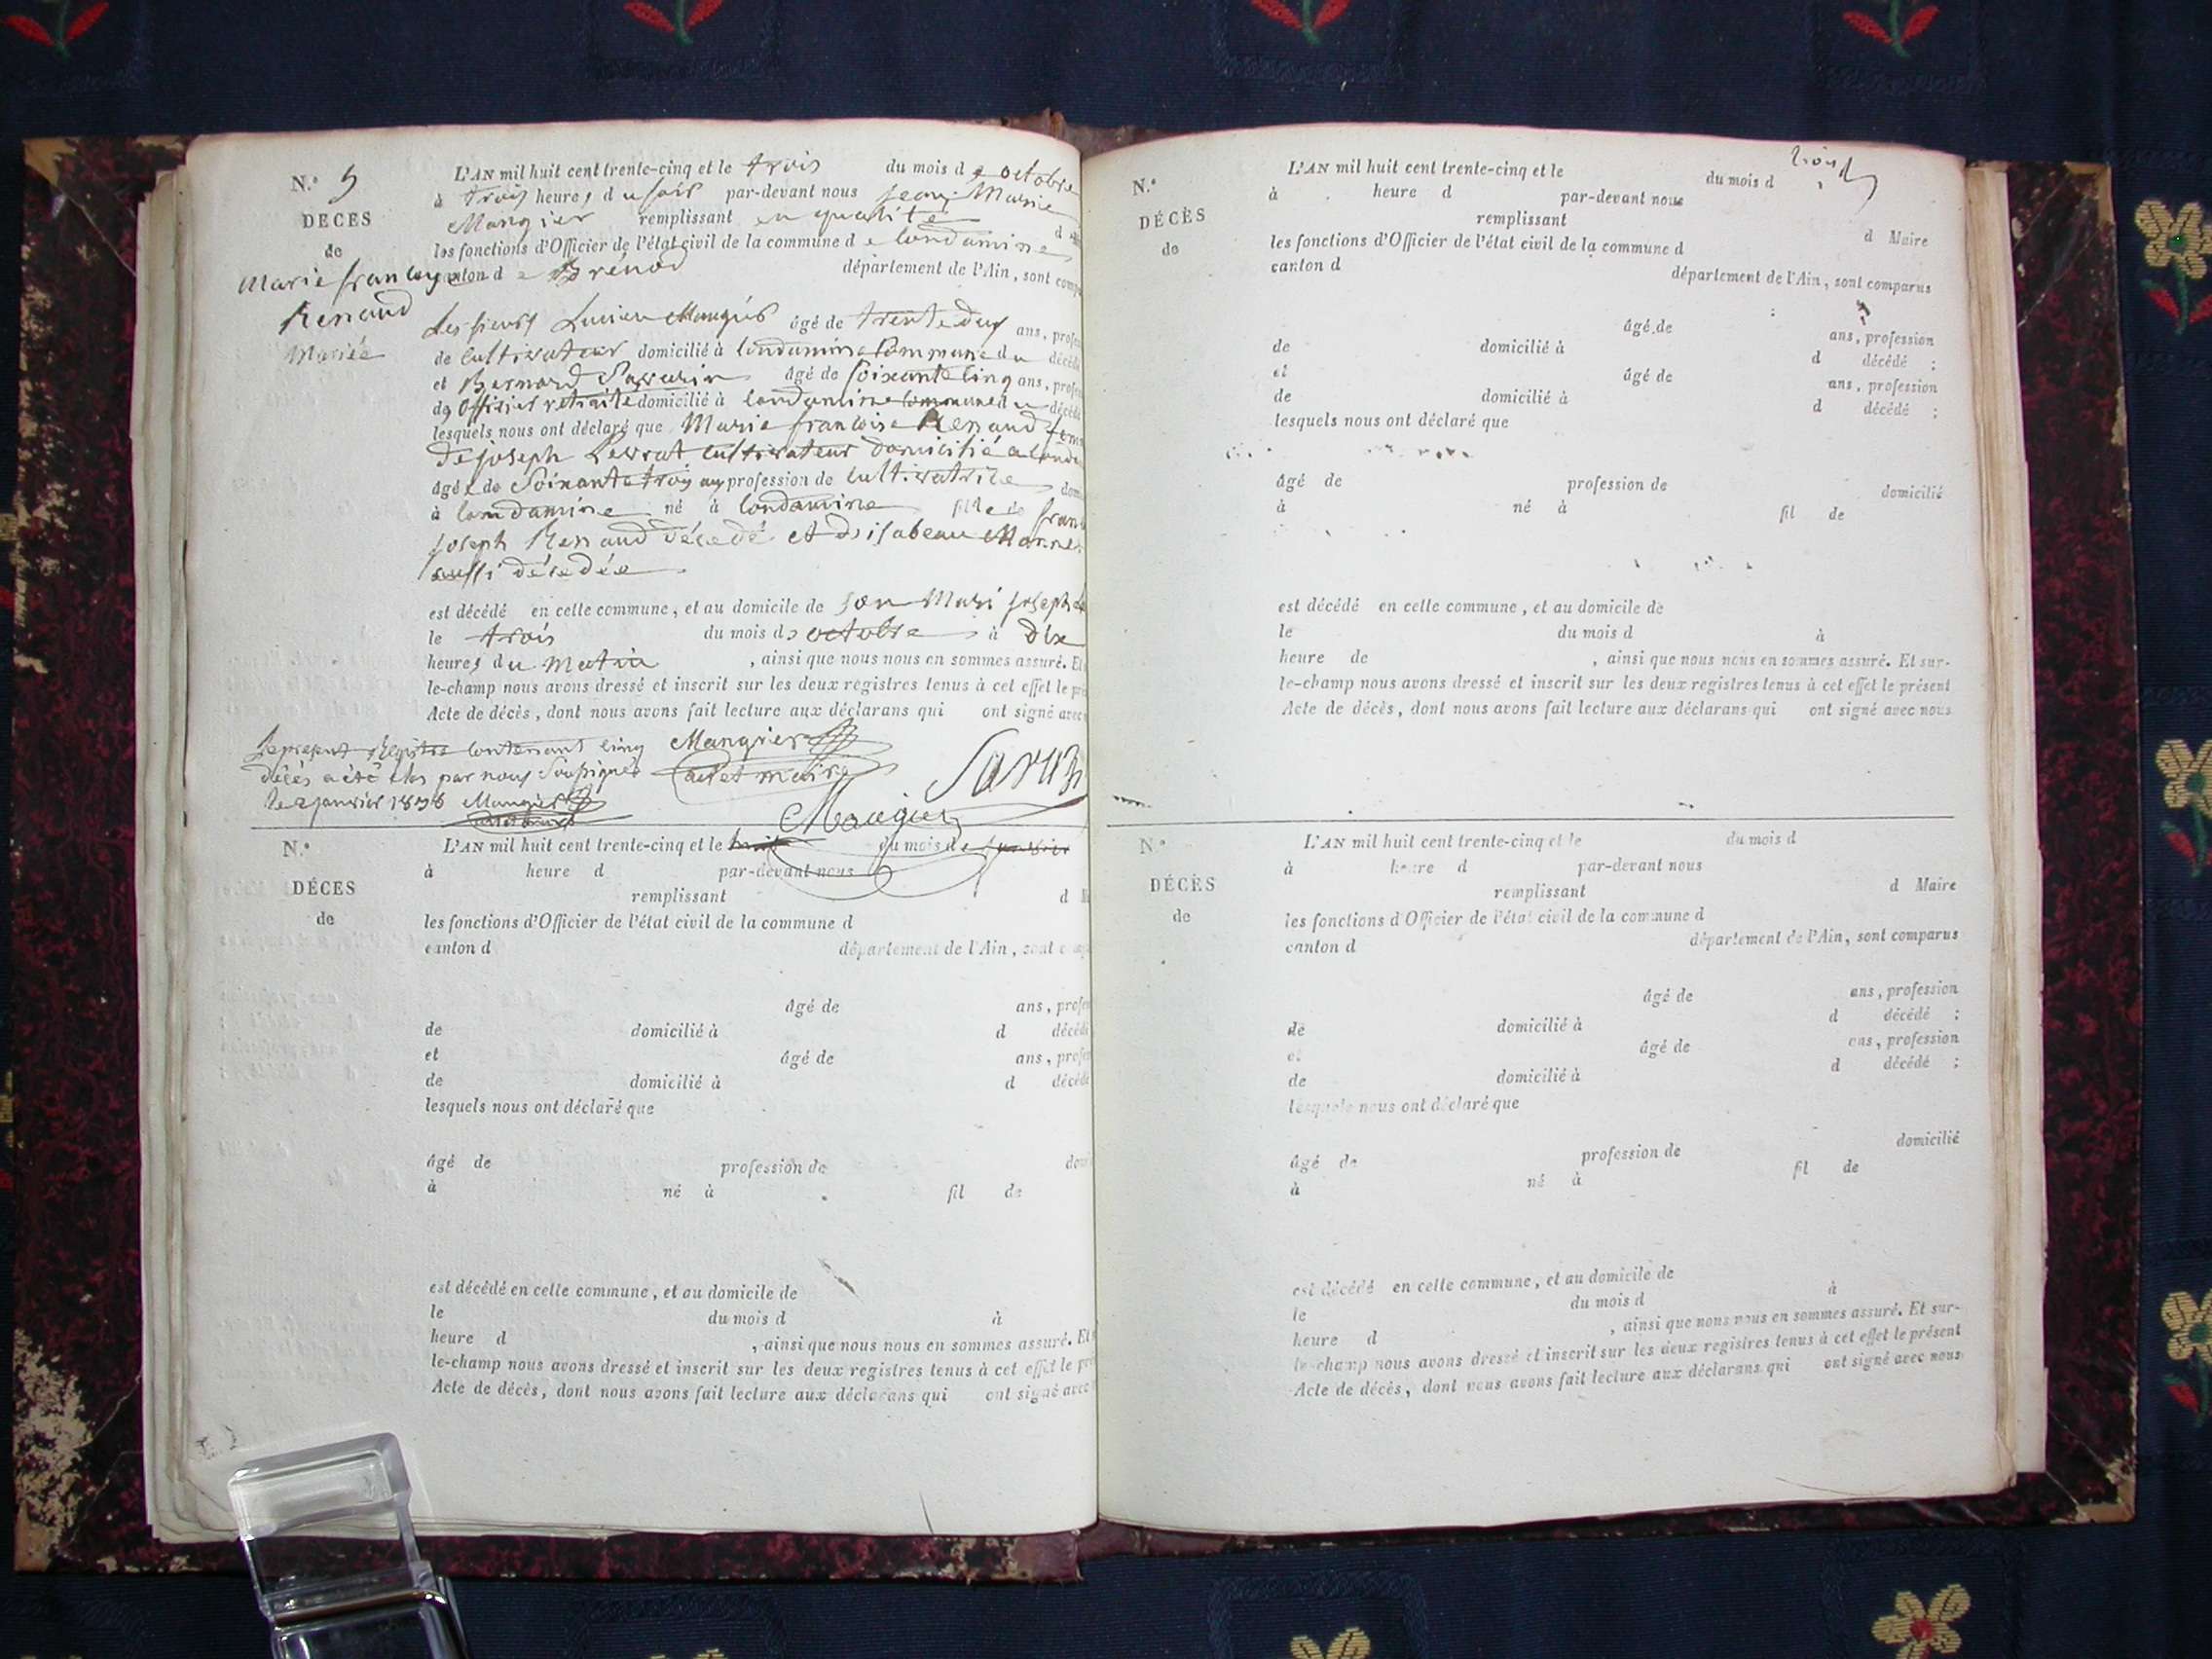 N.° 5
DÉCES
de
Marie françoise
Renaud
Mariée
L'AN mil huit cent trente-cinq et le trois du mois de octobre
à trois heures du soir par-devant nous jean Marie
Mangier remplissant en qualité d
les fonctions d'Officier de l'état civil de la commune de Condamine
canton de Brénod département de l'Ain, sont comp
Les sieurs Lucien Mangier âgé de trente deux ans, profes
de cultivateur domicilié à Condamine Commune du décédé
et Bernard Savarin âgé de soixante cinq ans, profes
de Officier retraité domicilié à Condamine Commune du décédé
lesquels nous ont déclaré que Marie francoise Renaud fem
de joseph Levrat cultivateur domicilié a Conda
âgée de Soixante trois ans profession de cultivatrice dom
à Condamine né à Condamine fille de fran
joseph Renaud décédé et d'isabeau
aussi décédée
est décédé en celle commune, et au domicile de son Mari joseph
le trois du mois de octobre à dix
heures du Matin , ainsi que nous nous en sommes assuré. Et
le-champ nous avons dressé et inscrit sur les deux registres tenus à cet effet le pré
Acte de décès, dont nous avons fait lecture aux déclarans qui ont signé avec
Le présent Registre contenant cinq Mangier
décès a été clos par nous Soussigné maire Savarin
le 2 janvier 1836 Mangier
Maugier
N.°
DÉCES
de
L'AN mil huit cent trente-cinq et le huit du mois de janvier
à heure d par-devant nous
remplissant d M
les fonctions d'Officier de l'état civil de la commune d
canton d département de l'Ain, sont comp
âgé de ans, profes
de domicilié à d décédé
et âgé de ans, profes
de domicilié à d décédé
lesquels nous ont déclaré que
âgé de profession de domi
à né à fil de
est décédé en celle commune, et au domicile de
le du mois d à
heure d , ainsi que nous nous en sommes assuré. Et
le-champ nous avons dressé et inscrit sur les deux registres tenus à cet effet le pré
Acte de décès, dont nous avons fait lecture aux déclarans qui ont signé avec
N.°
DÉCÈS
de
L'AN mil huit cent trente-cinq et le du mois d
à heure d par-devant nous
remplissant d Maire
les fonctions d'Officier de l'état civil de la commune d
canton d département de l'Ain, sont comparus
âgé de ans, profession
de domicilié à d décédé ;
et âgé de ans, profession
de domicilié à d décédé ;
lesquels nous ont déclaré que
âgé de profession de domicilié
à né à fil de
est décédé en celle commune, et au domicile de
le du mois d à
heure de , ainsi que nous nous en sommes assuré. Et sur-
le-champ nous avons dressé et inscrit sur les deux registres tenus à cet effet le présent
Acte de décès, dont nous avons fait lecture aux déclarans qui ont signé avec nous
N.°
DÉCÈS
de
L'AN mil huit cent trente-cinq et le du mois d
à heure d par-devant nous
remplissant d Maire
les fonctions d'Officier de l'état civil de la commune d
canton d département de l'Ain, sont comparus
âgé de ans, profession
de domicilié à d décédé ;
et âgé de ans, profession
de domicilié à d décédé ;
lesquels nous ont déclaré que
âgé de profession de domicilié
à né à fil de
est décédé en celle commune, et au domicile de
le du mois d à
heure d , ainsi que nous nous en sommes assuré. Et sur-
le-champ nous avons dressé et inscrit sur les deux registres tenus à cet effet le présent
Acte de décès, dont nous avons fait lecture aux déclarans qui ont signé avec nous